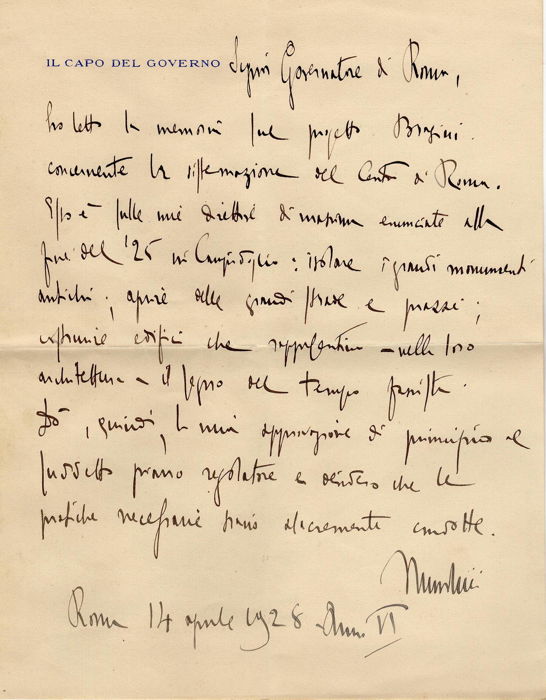 IL CAPO DEL GOVERNO
Signor Governatore di Roma,
ho letto la memoria sul progetto Brasini
concernente la sistemazione del Centro di Roma.
Esso è sulle mie direttive di massima enunciate alla
fine del '25 in Campidoglio: isolare i grandi monumenti
antichi; aprire delle grandi strade e piazze;
costruire edifici che rappresentino - nella loro
architettura - il segno del tempo fascista.
Dò, quindi, la mia approvazione di principio al
suddetto piano regolatore e desidero che le
pratiche necessarie siano alacremente condotte.
Mussolini
Roma 14 aprile 1928 Anno VI